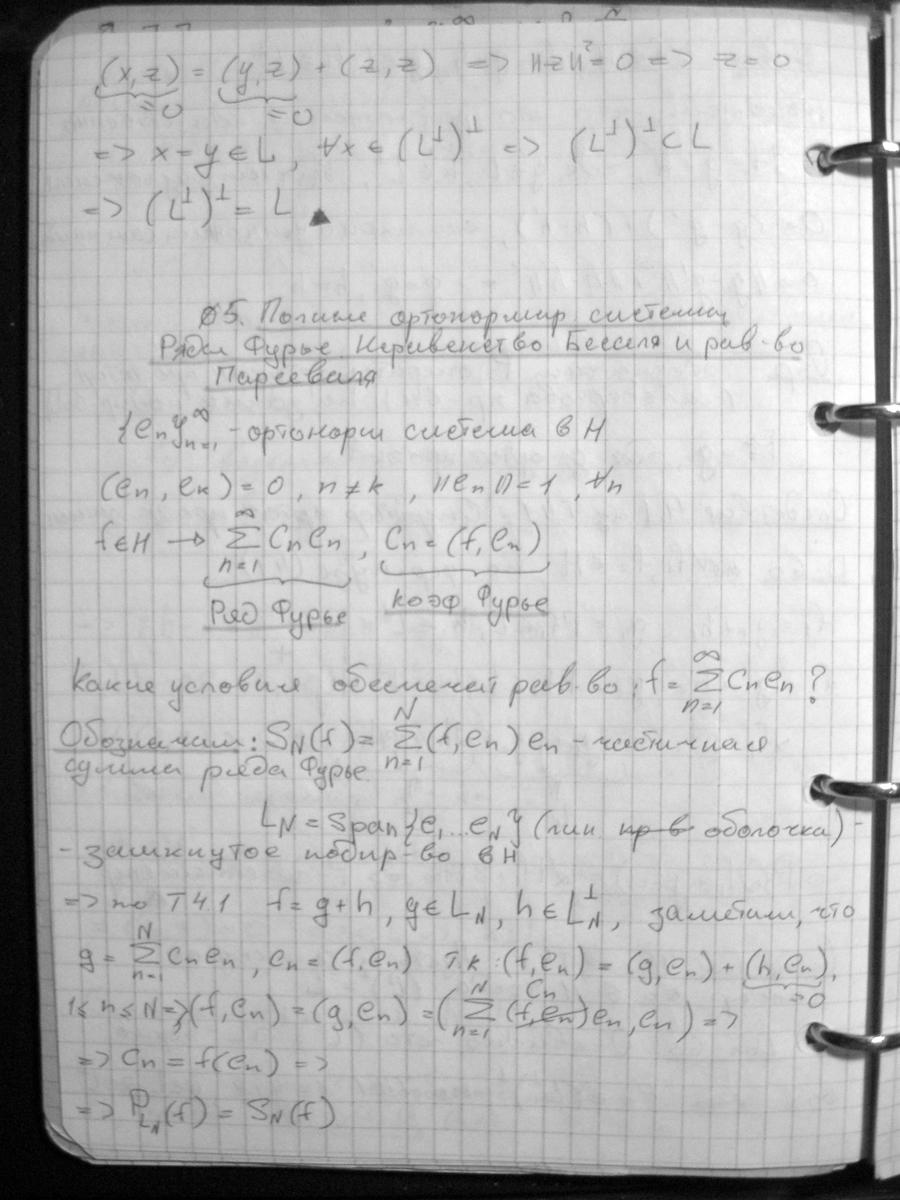 (x,z) = (y,z) + (z,z) => ||z||² = 0 => z = 0
=0 =0
=> x = y ∈ L, ∀x ∈ (L^⊥)^⊥ => (L^⊥)^⊥ ⊂ L
=> (L^⊥)^⊥ = L ▲
§5. Полные ортонормир системы
Ряды Фурье. Неравенство Бесселя и рав-во
Парсеваля
{e_n}_{n=1}^∞ - ортонорм система в H
(e_n, e_k) = 0, n ≠ k, ||e_n|| = 1, ∀n
f ∈ H → ∑_{n=1}^∞ C_n e_n, C_n = (f, e_n)
Ряд Фурье коэф Фурье
Какие условия обеспечат рав-во: f = ∑_{n=1}^∞ C_n e_n ?
Обозначим: S_N(f) = ∑_{n=1}^N (f, e_n) e_n - частичная
сумма ряда Фурье
L_N = span{e_1...e_N} (лин пр-в оболочка) -
- замкнутое подпр-во в H
=> по Т 4.1 f = g + h, g ∈ L_N, h ∈ L_N^⊥, заметим, что
g = ∑_{n=1}^N C_n e_n, C_n = (f, e_n) т.к. (f, e_n) = (g, e_n) + (h, e_n),
=0
1 ≤ n ≤ N => (f, e_n) = (g, e_n) = (∑_{n=1}^N (f, e_n) C_n e_n, e_n) =>
=> C_n = f(e_n) =>
=> P_{L_N}(f) = S_N(f)